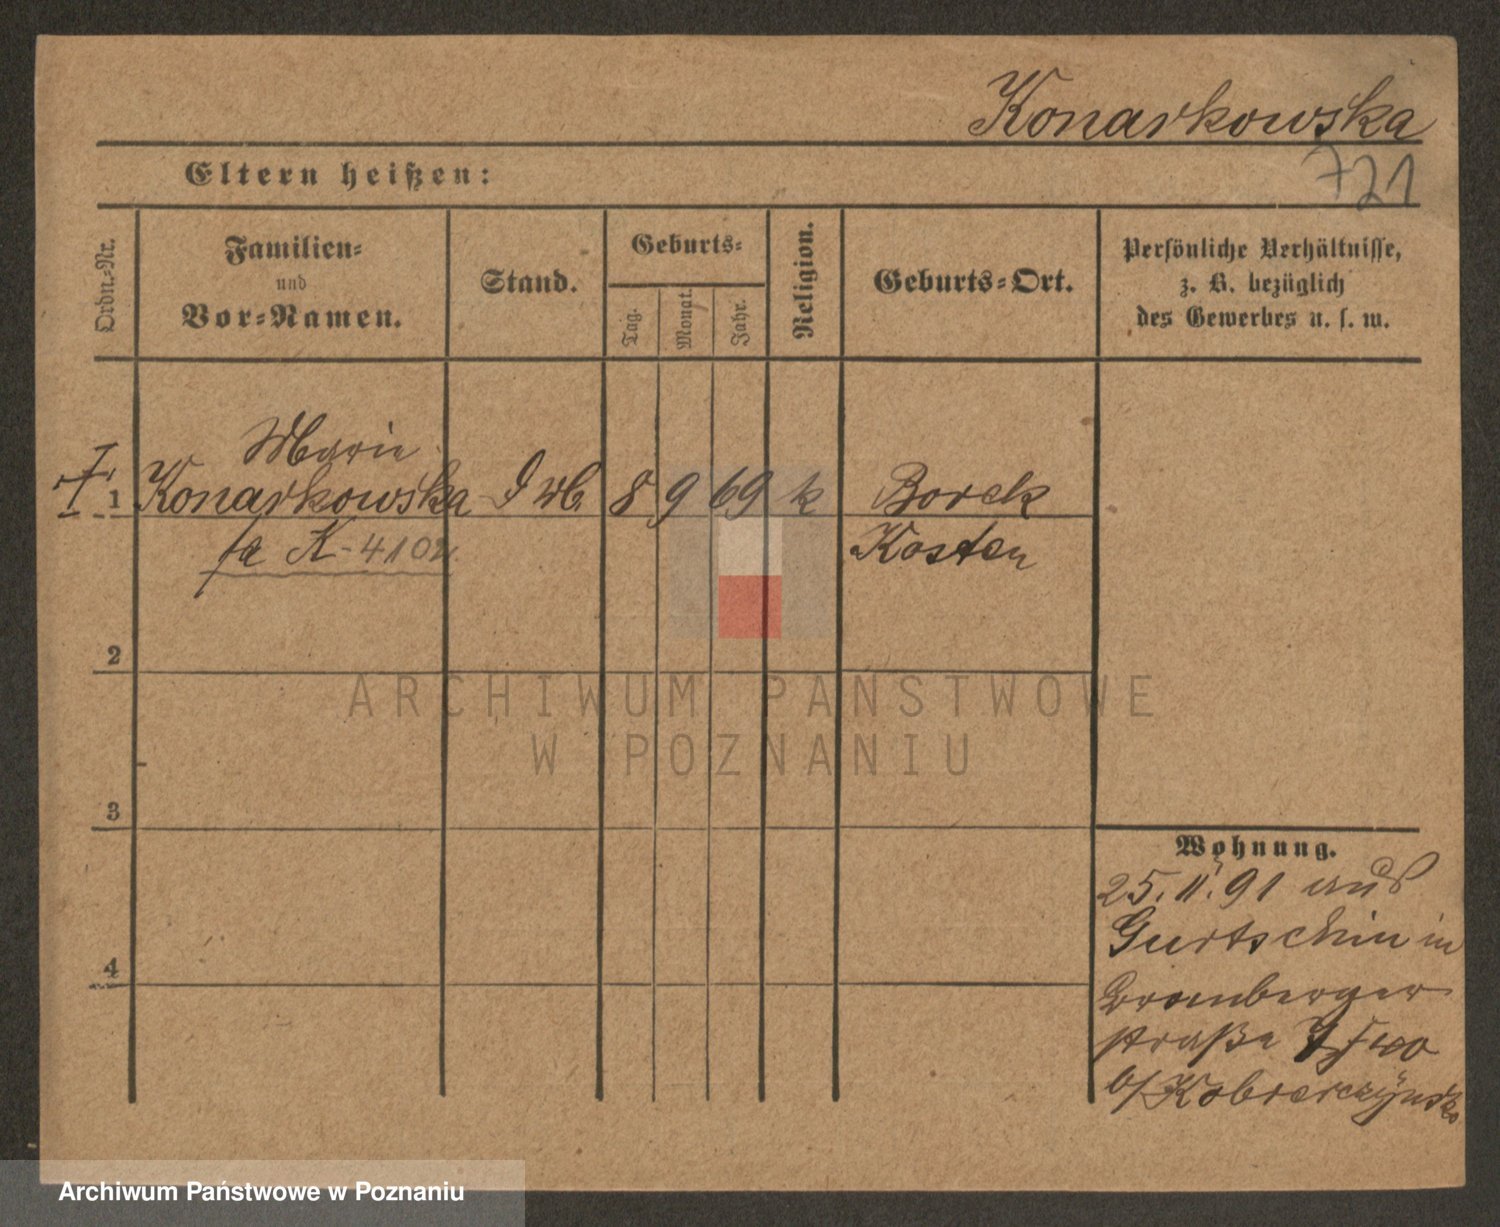 Konarkowska
721
Eltern heißen:
Ordn.-Nr.
Familien-
und
Vor-Namen.
Stand.
Geburts-
Tag.
Monat.
Jahr.
Religion.
Geburts-Ort.
Persönliche Verhältnisse,
z. B. bezüglich
des Gewerbes u. s. w.
Marie
1 Konarkowska 8 9 69 k Borek
K-4102 Kosten
2
3
4
Wohnung.
25. 11. 91 aus
Gurtschin in
Bromberger
straße
b/
ARCHIWUM PAŃSTWOWE
W POZNANIU
Archiwum Państwowe w Poznaniu